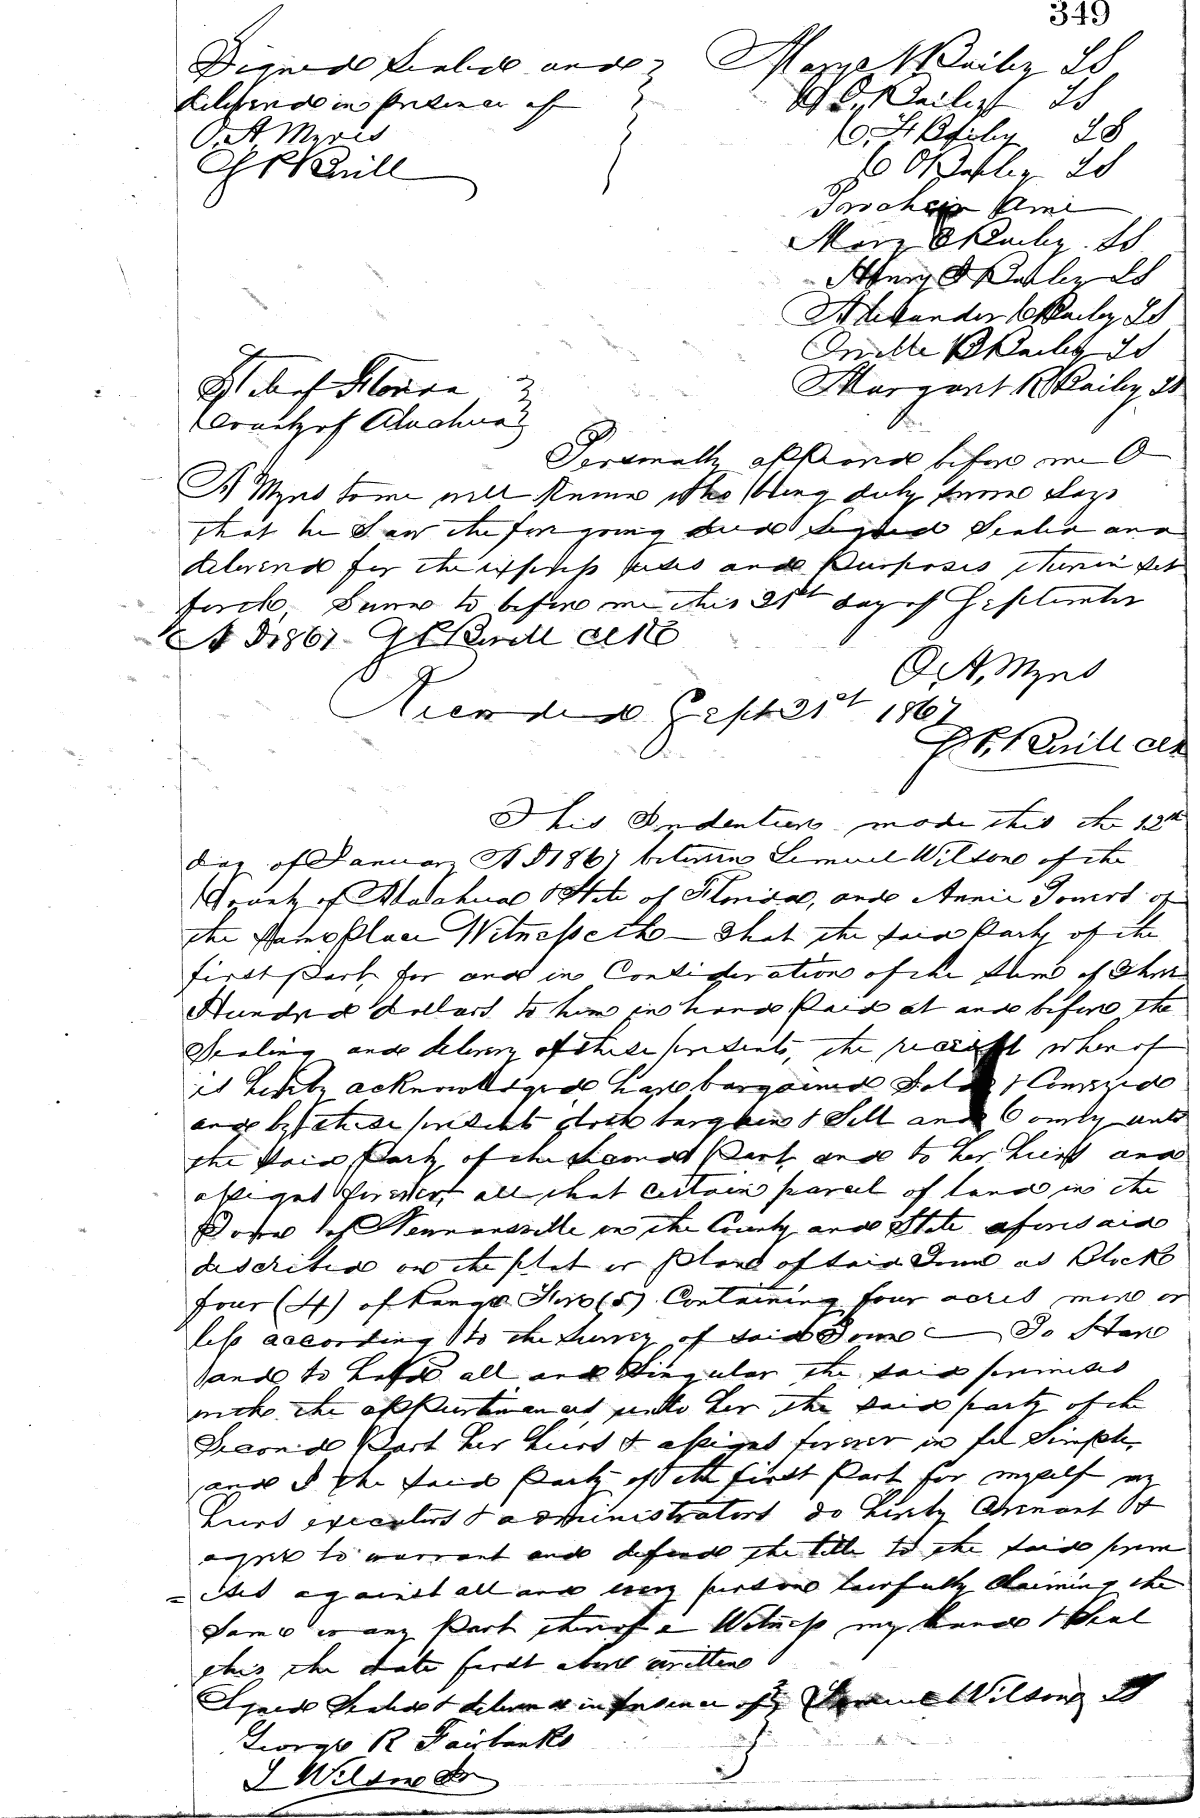 349
Signed Sealed and Mary N Bailey LS
delivered in presence of Bailey LS
O. A. Myres C. F Bailey LS
Bevill C O Bailey LS
Prochein Ami
Mary E Bailey. LS
Henry Bailey LS
Alexander C Bailey LS
Orville B Bailey LS
State of Florida Margaret R Bailey LS
County of Alachua
Personally appeared before me O
A Myres to me well known who being duly sworn says
that he saw the foregoing deed signed Sealed and
delivered for the express uses and Purposes therein set
forth, Sworn to before me this 21st day of September
A D 1867 Bevill Clk
O. A. Myres
Recorded Sept 21st 1867
Bevill Clk
This Indenture made this the 12th
day of January A D 1867 between Lemuel Wilson of the
County of Alachua & State of Florida, and Annie Towers of
the Same Place Witnesseth — That the said Party of the
first part, for and in Consideration of the sum of Three
Hundred dollars to him in hand Paid at and before the
Sealing and delivery of these presents, the receipt whereof
is hereby acknowledged have bargained Sold & Conveyed
and by these presents doth bargain & Sell and Convey unto
the said Party of the second Part, and to her heirs and
assigns forever, all that certain parcel of land in the
Town of Newnansville in the County and State aforesaid
described on the plat or plan of said Town as Block
four (4) of Range Five (5) Containing four acres more or
less according to the Survey of said Town — To Have
and to hold all and Singular the said premises
with the appurtenances, unto her the said party of the
Second Part her heirs & assigns forever in fee Simple,
and I the said Party of the first Part for myself my
heirs executors & administrators do hereby Covenant &
agree to warrant and defend the title to the said prem
= ises against all and every person lawfully claiming the
Same or any Part thereof — Witness my hand & Seal
this the date first above written
Signed Sealed & delivered in presence of Lemuel Wilson LS
George R Fairbanks
L Wilson Jr